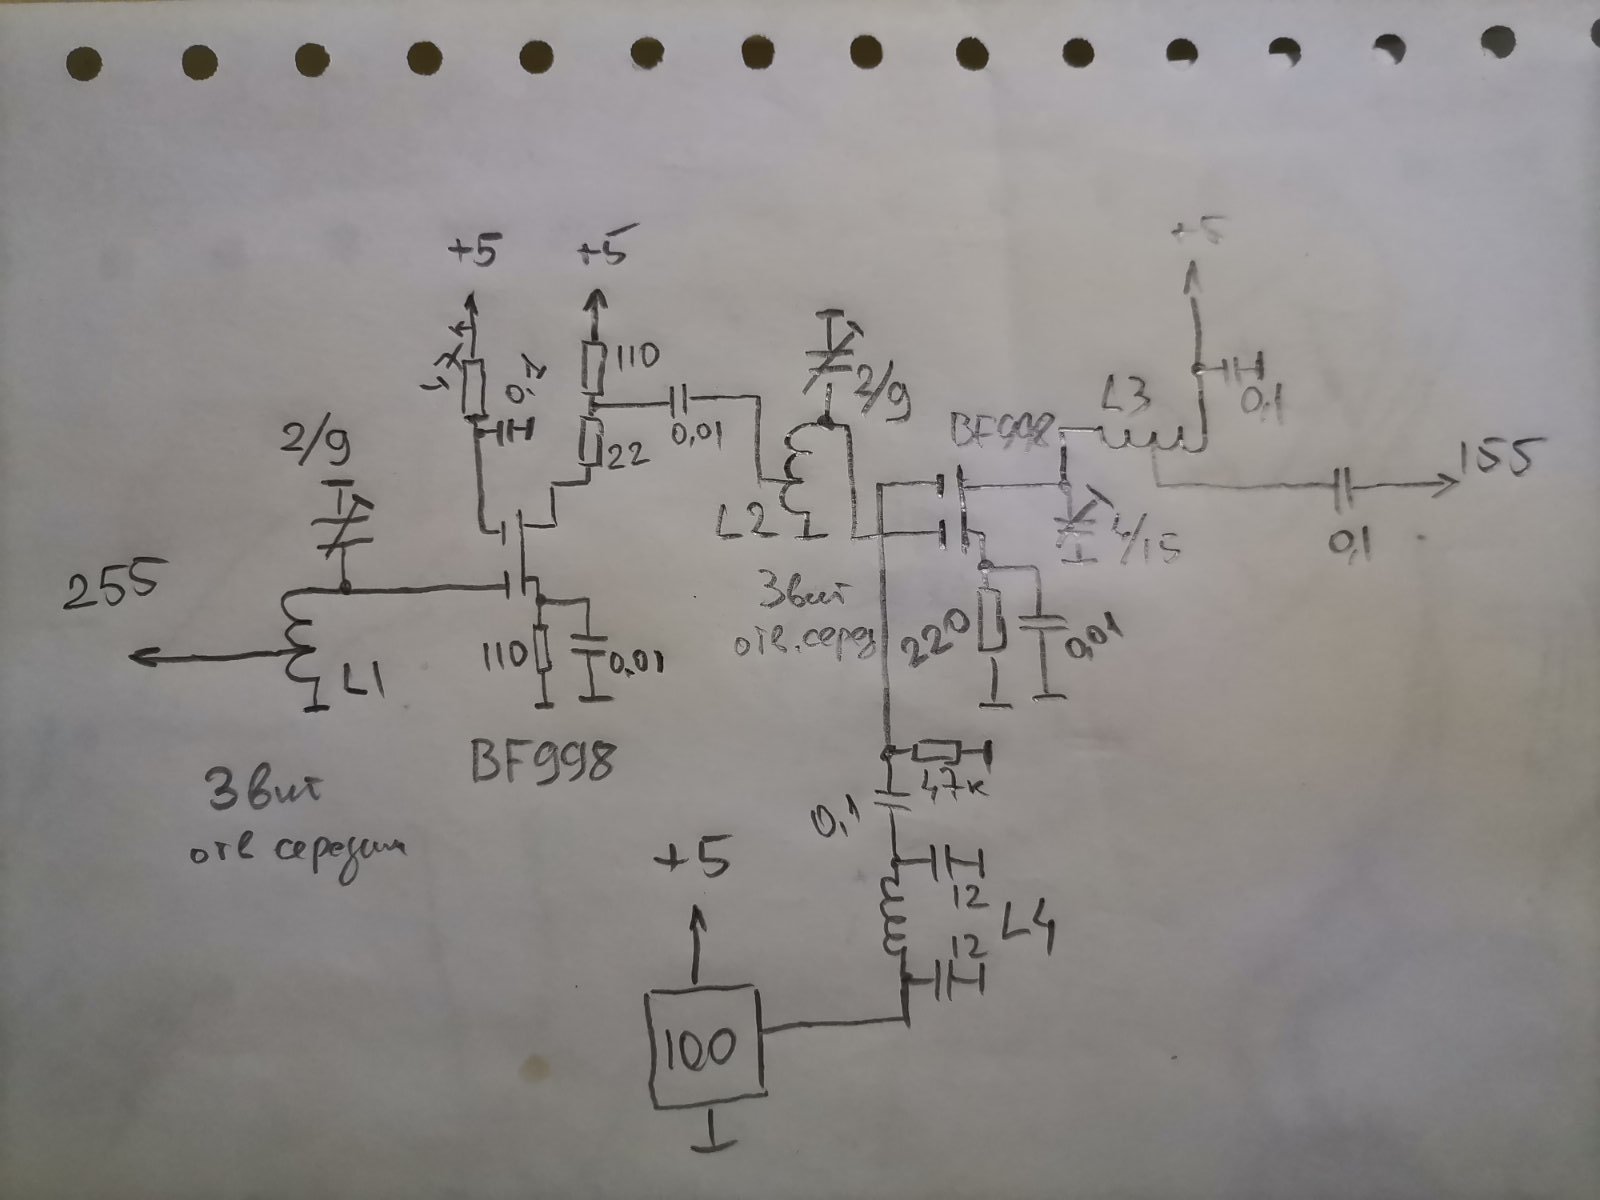 +5
+5
+5
110
0,1
2/9
L3
0,1
2/9
0,01
22
BF998
155
L2
4/15
0,1
255
3 вит
отв. серед
110
0,01
220
0,01
L1
BF998
3 вит
отв середин
47к
0,1
+5
12
L4
12
100